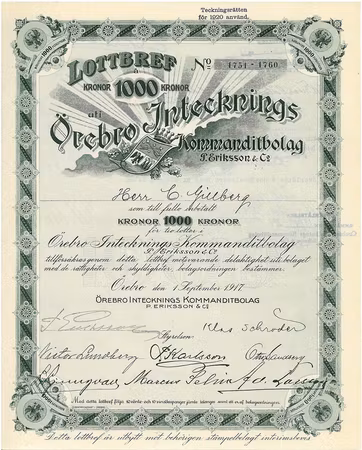 Teckningsrätten
för 1920 använd.
LOTTBREF
Nº 4751 - 4760.
å
KRONOR 1000 KRONOR
uti
Örebro Intecknings
Kommanditbolag
P. Eriksson & Cº
Herr C Gillberg
som till fullo inbetalt
KRONOR 1000 KRONOR
för tio lotter i
Örebro Intecknings Kommanditbolag
P. Eriksson & Cº
tillförsäkras genom detta lottbref motsvarande delaktighet uti bolaget
med de rättigheter och skyldigheter bolagsordningen bestämmer.
Örebro den 1 September 1917
ÖREBRO INTECKNINGS KOMMANDITBOLAG
P. ERIKSSON & Cº
P. Eriksson
Styrelsen:
Klas Schröder
Victor Lundberg P. Karlsson Otto
Marcus
Med detta lottbref följa kvitto och
Detta lottbref är utbytt mot behörigen stämpelbelagt interimsbevis